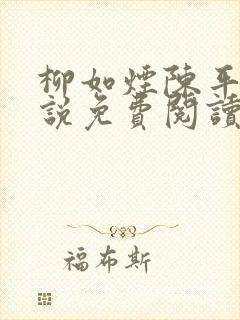 柳如煙陳平
說免費閱讀
福布斯